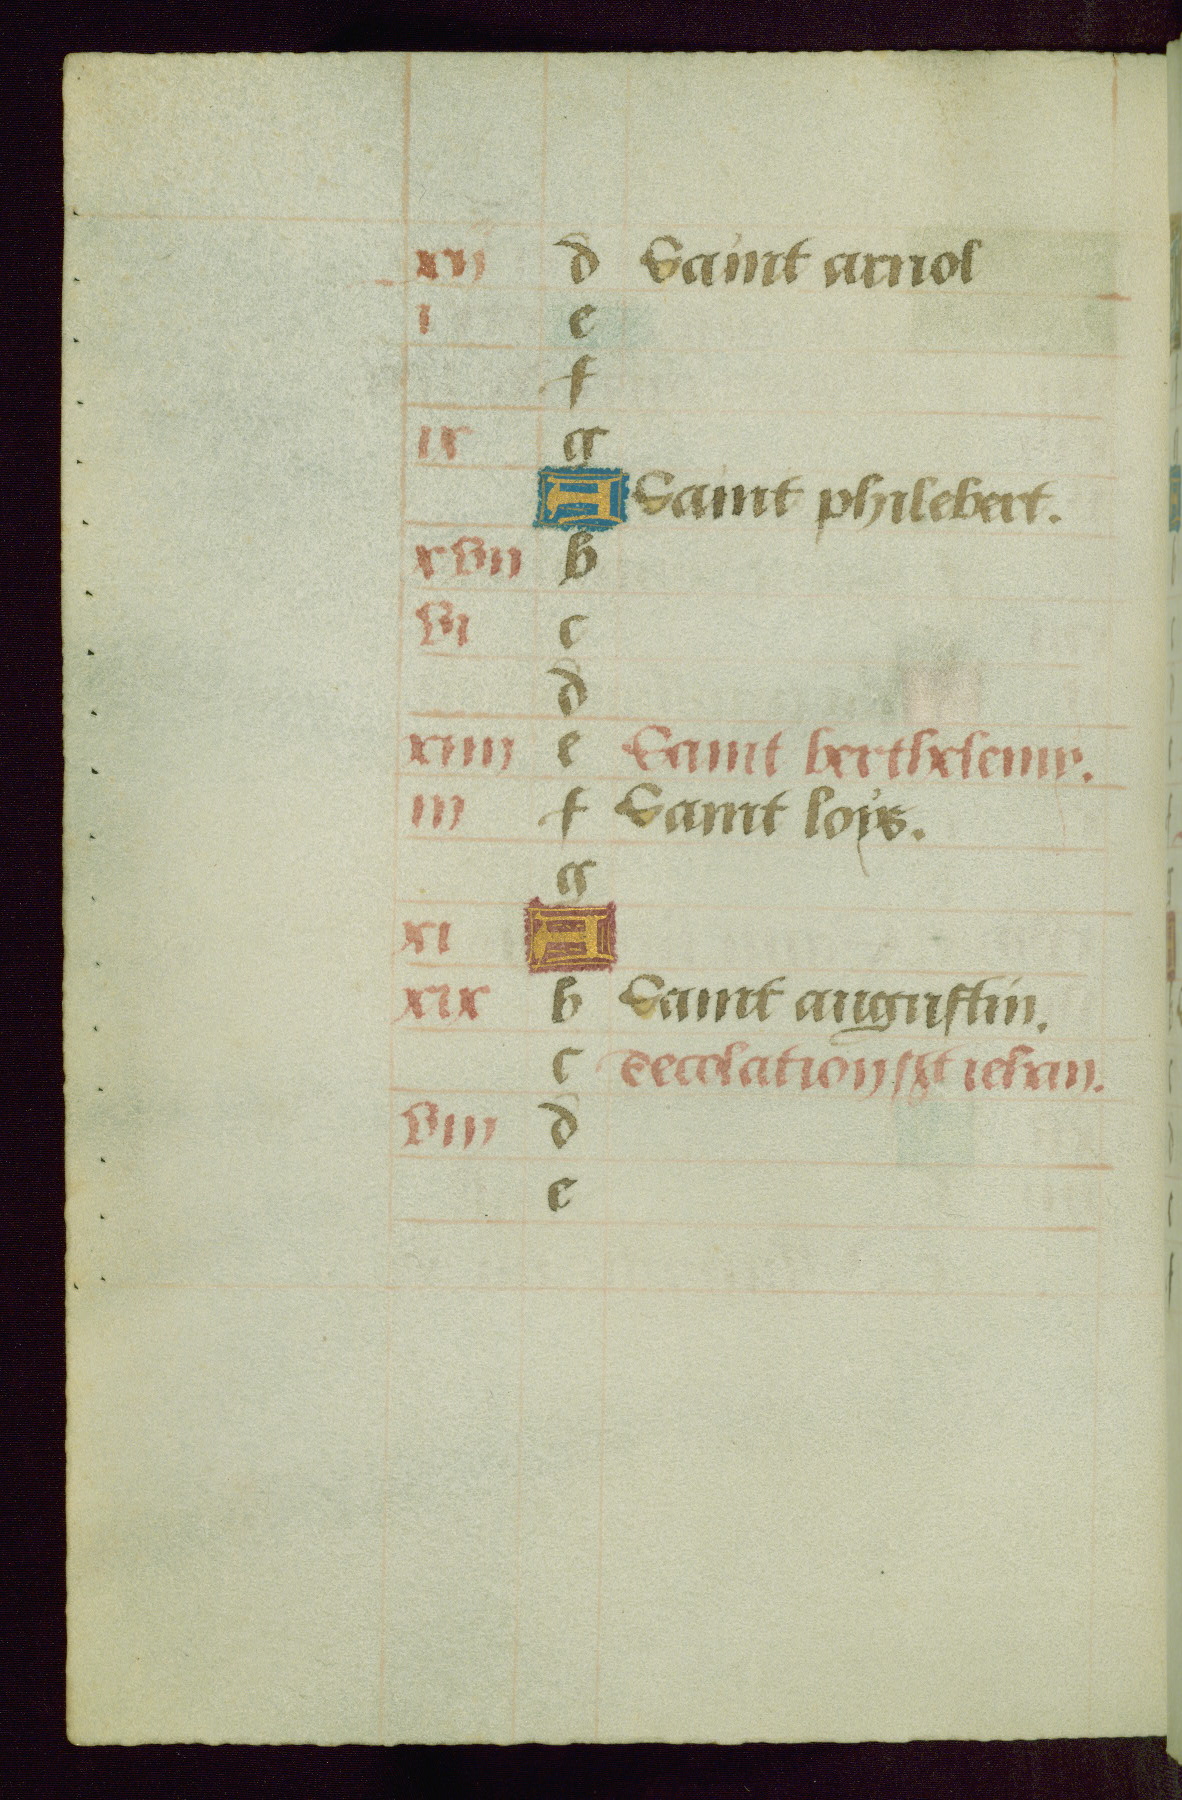 xvi d Saint arnol
i e
f
ix g
A Saint philebert.
xvii b
vi c
d
xiiii e Saint berthelemy.
iii f Saint loys.
g
xi A
xix b Saint augustin.
c decolation st iehan.
viii d
e